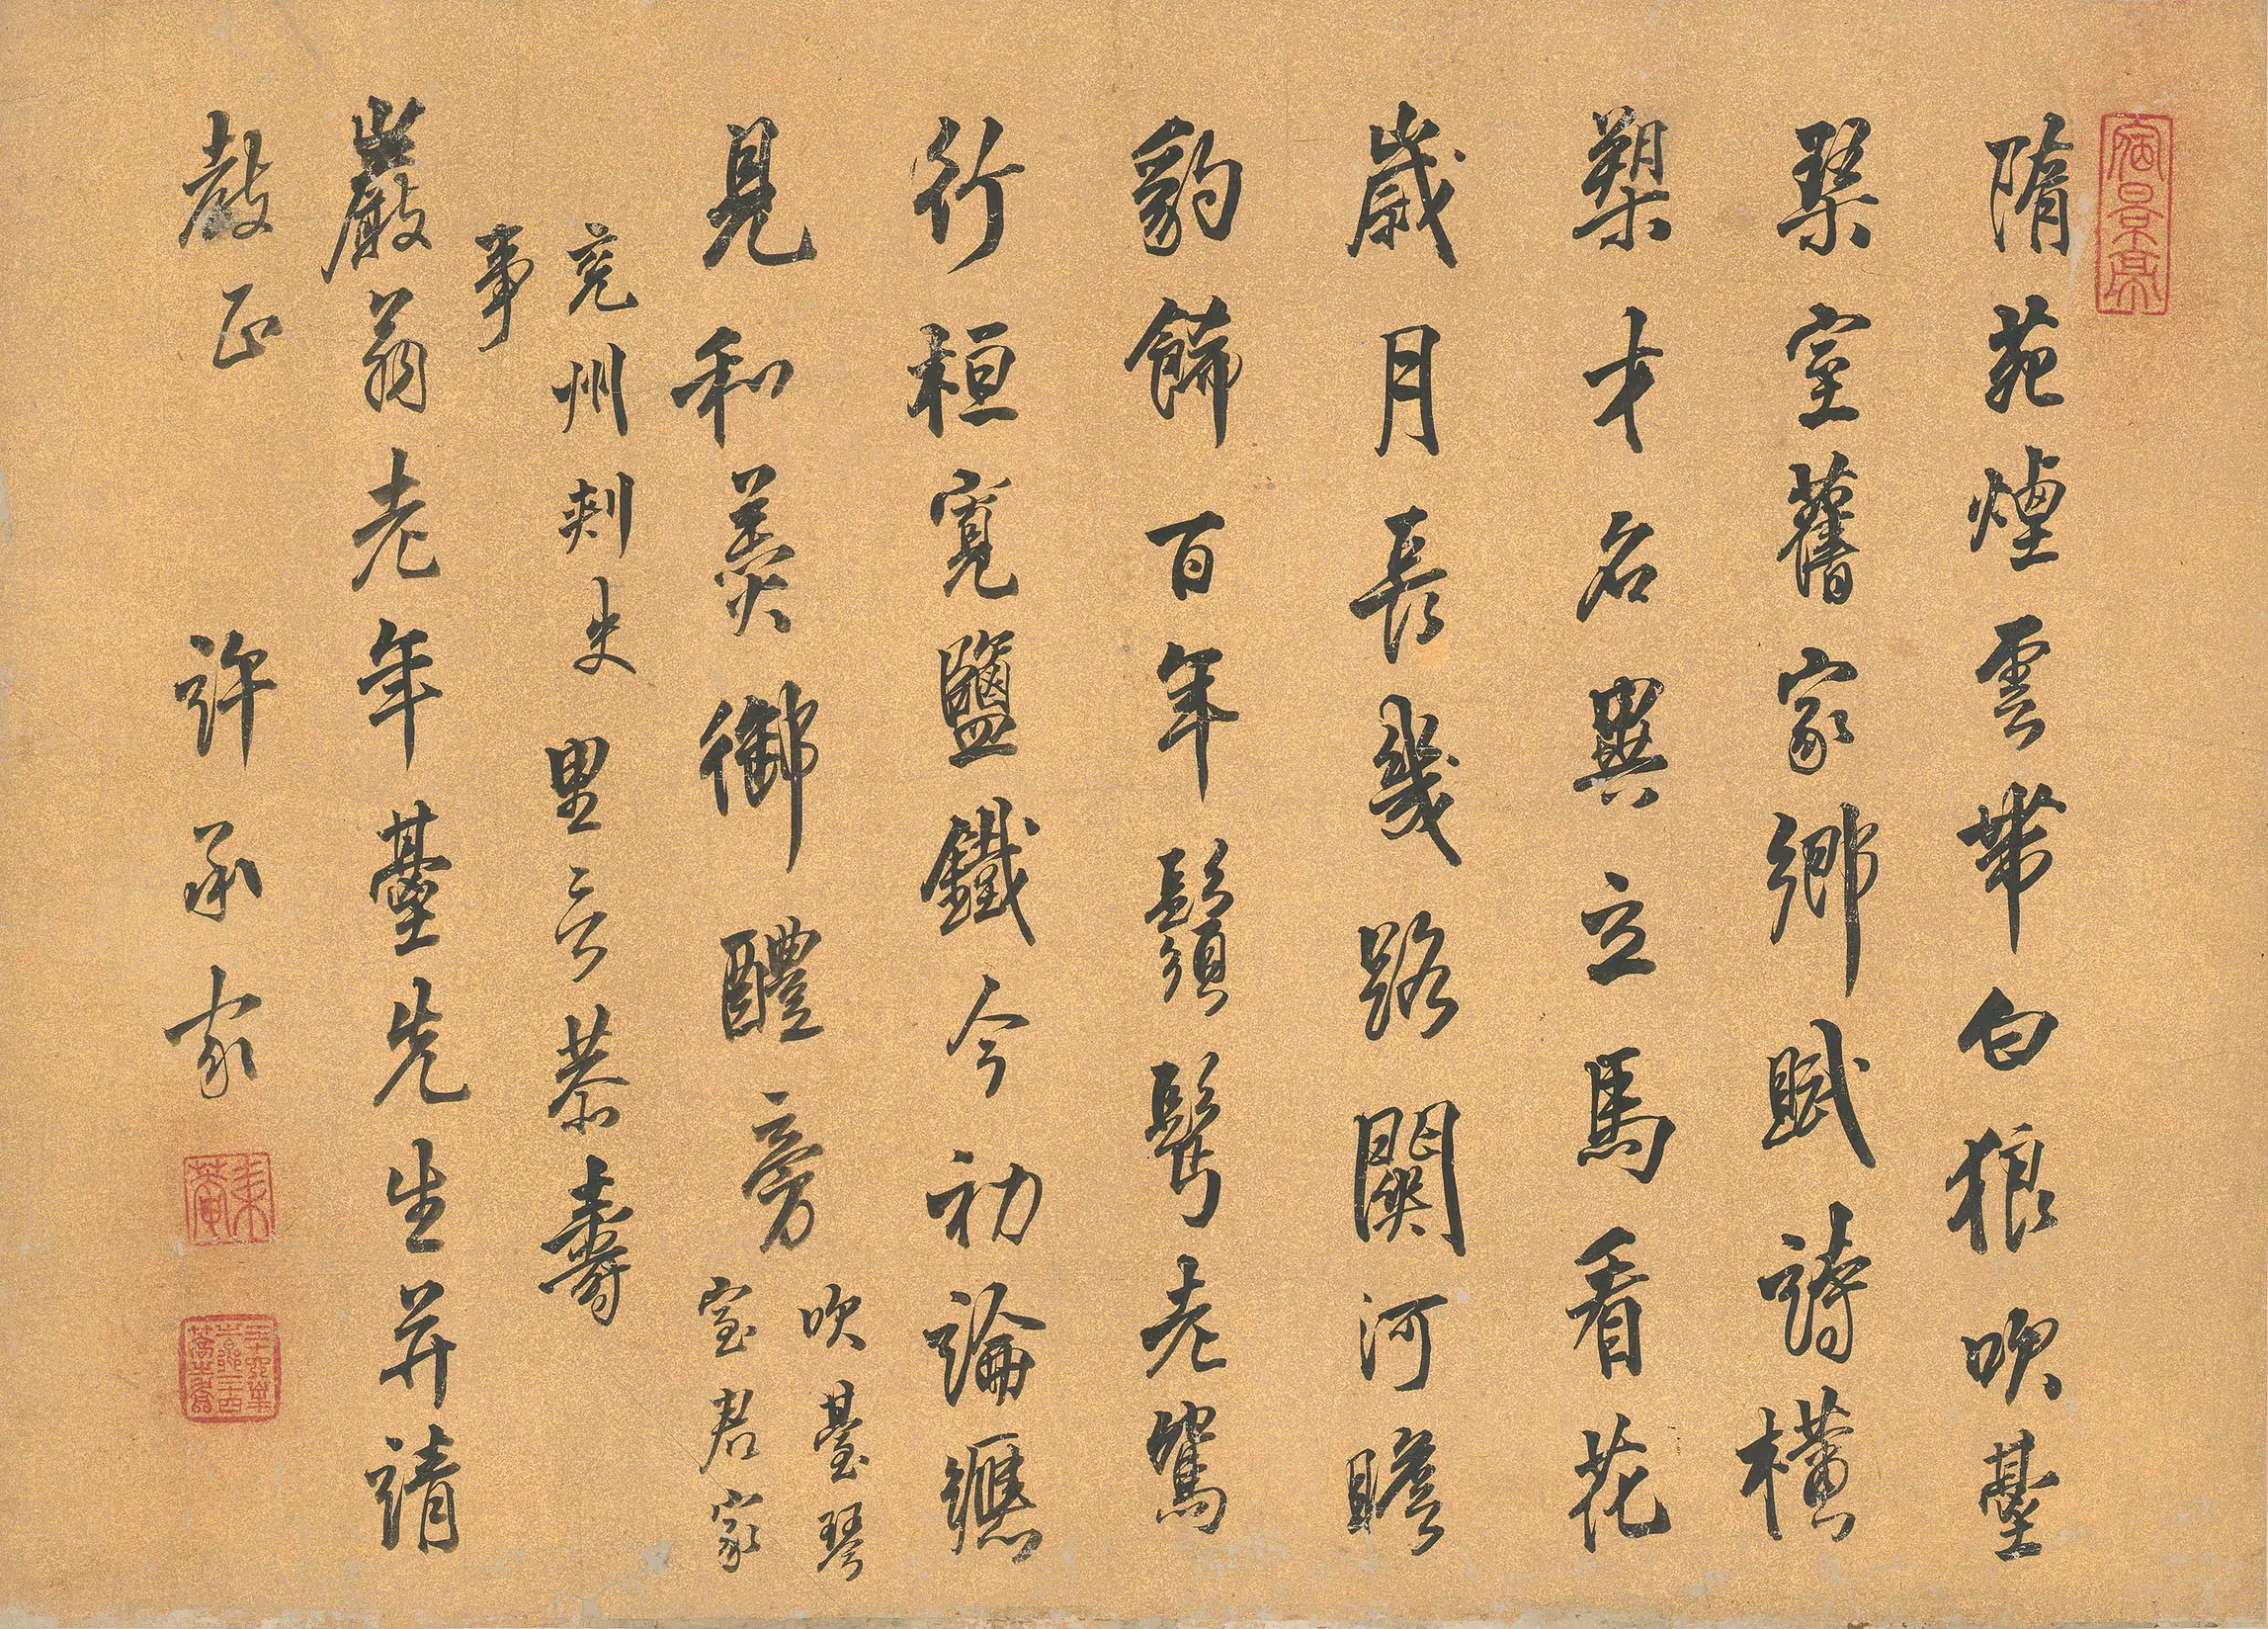 隋苑煙雲帶白狼吹臺
琹室舊家鄉賦詩橫
槊才名異立馬看花
歲月長幾路關河瞻
豹飾百年鬚鬢老鴛
行桓寬鹽鐵今初論總
見和羹御醴旁
吹臺琴
室君家
兗州刺史
事
里言恭壽
嚴翁老年臺先生并請
教正 許承家